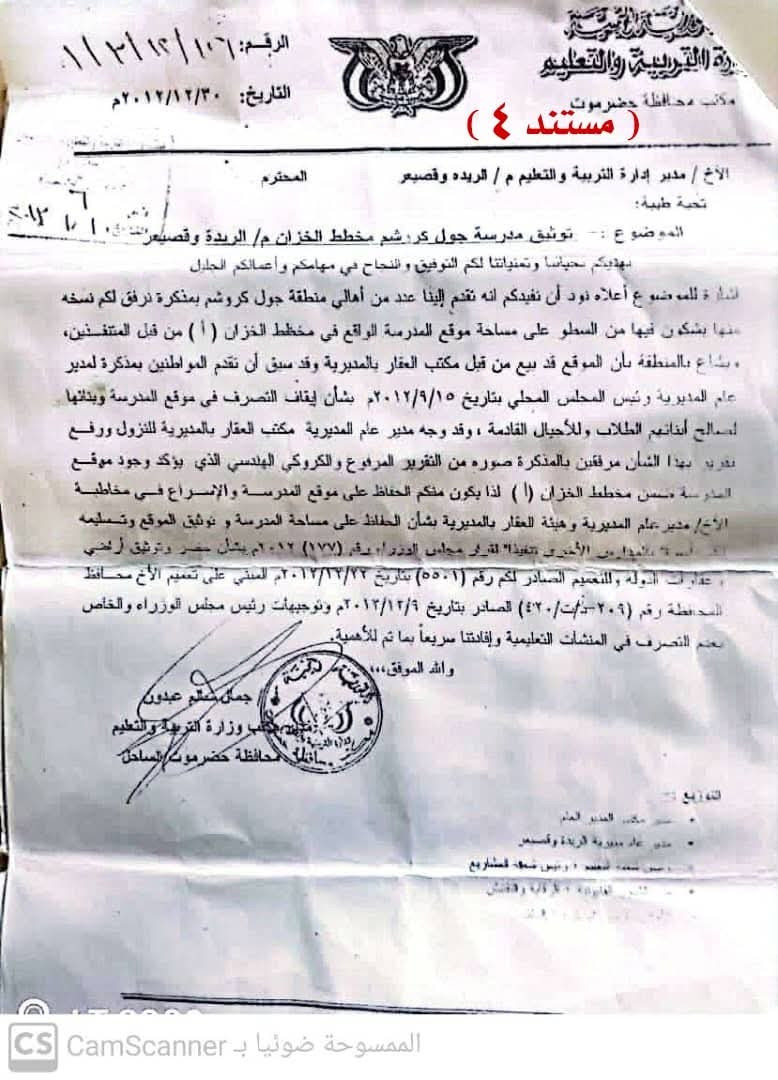 الرقم: ١/٣/١٢/١٠٦
التربية والتعليم
التاريخ: ٢٠١٢/١٢/٣٠م
مكتب محافظة حضرموت
( مستند ٤ )
الأخ / مدير إدارة التربية والتعليم م / الريده وقصيعر المحترم
تحية طيبة:
الموضوع :- توثيق مدرسة جول كروشم مخطط الخزان م/ الريدة وقصيعر
نهديكم تحياتنا وتمنياتنا لكم التوفيق والنجاح في مهامكم وأعمالكم الجليل
اشارة للموضوع أعلاه نود أن نفيدكم انه تقدم إلينا عدد من أهالي منطقة جول كروشم بمذكرة نرفق لكم نسخه
منها يشكون فيها من السطو على مساحة موقع المدرسة الواقع في مخطط الخزان ( أ ) من قبل المتنفذين،
ويشاع بالمنطقة بأن الموقع قد بيع من قبل مكتب العقار بالمديرية وقد سبق أن تقدم المواطنين بمذكرة لمدير
عام المديرية ورئيس المجلس المحلي بتاريخ ٢٠١٢/٩/١٥م بشأن إيقاف التصرف في موقع المدرسة وبنائها
لصالح أبنائهم الطلاب وللأجيال القادمة ، وقد وجه مدير عام المديرية مكتب العقار بالمديرية للنزول ورفع
تقرير بهذا الشأن مرفقين بالمذكرة صوره من التقرير المرفوع والكروكي الهندسي الذي يؤكد وجود موقع
المدرسة ضمن مخطط الخزان (أ) لذا يكون منكم الحفاظ على موقع المدرسة والإسراع في مخاطبة
الأخ/ مدير عام المديرية وهيئة العقار بالمديرية بشأن الحفاظ على مساحة المدرسة و توثيق الموقع وتسليمه
بالمدارس الأخرى تنفيذا لقرار مجلس الوزراء رقم (١٧٧) ٢٠١٢م بشأن حصر وتوثيق أراضي
وعقارات الدولة وللتعميم الصادر لكم رقم (٥٥٠١) بتاريخ ٢٠١٢/١٢/٢٢م المبني على تعميم الأخ محافظ
المحافظة رقم (٢٠٩-ذ/ت/٤٢٠) الصادر بتاريخ ٢٠١٢/١٢/٩م وتوجيهات رئيس مجلس الوزراء والخاص
بعدم التصرف في المنشآت التعليمية وإفادتنا سريعاً بما تم للأهمية.
والله الموفق،،،
جمال سالم عبدون
مدير مكتب وزارة التربية والتعليم
محافظة حضرموت الساحل
التوزيع
مدير مكتب المدير العام
مدير عام مديرية الريدة وقصيعر
المشاريع
CS CamScanner الممسوحة ضوئيا بـ